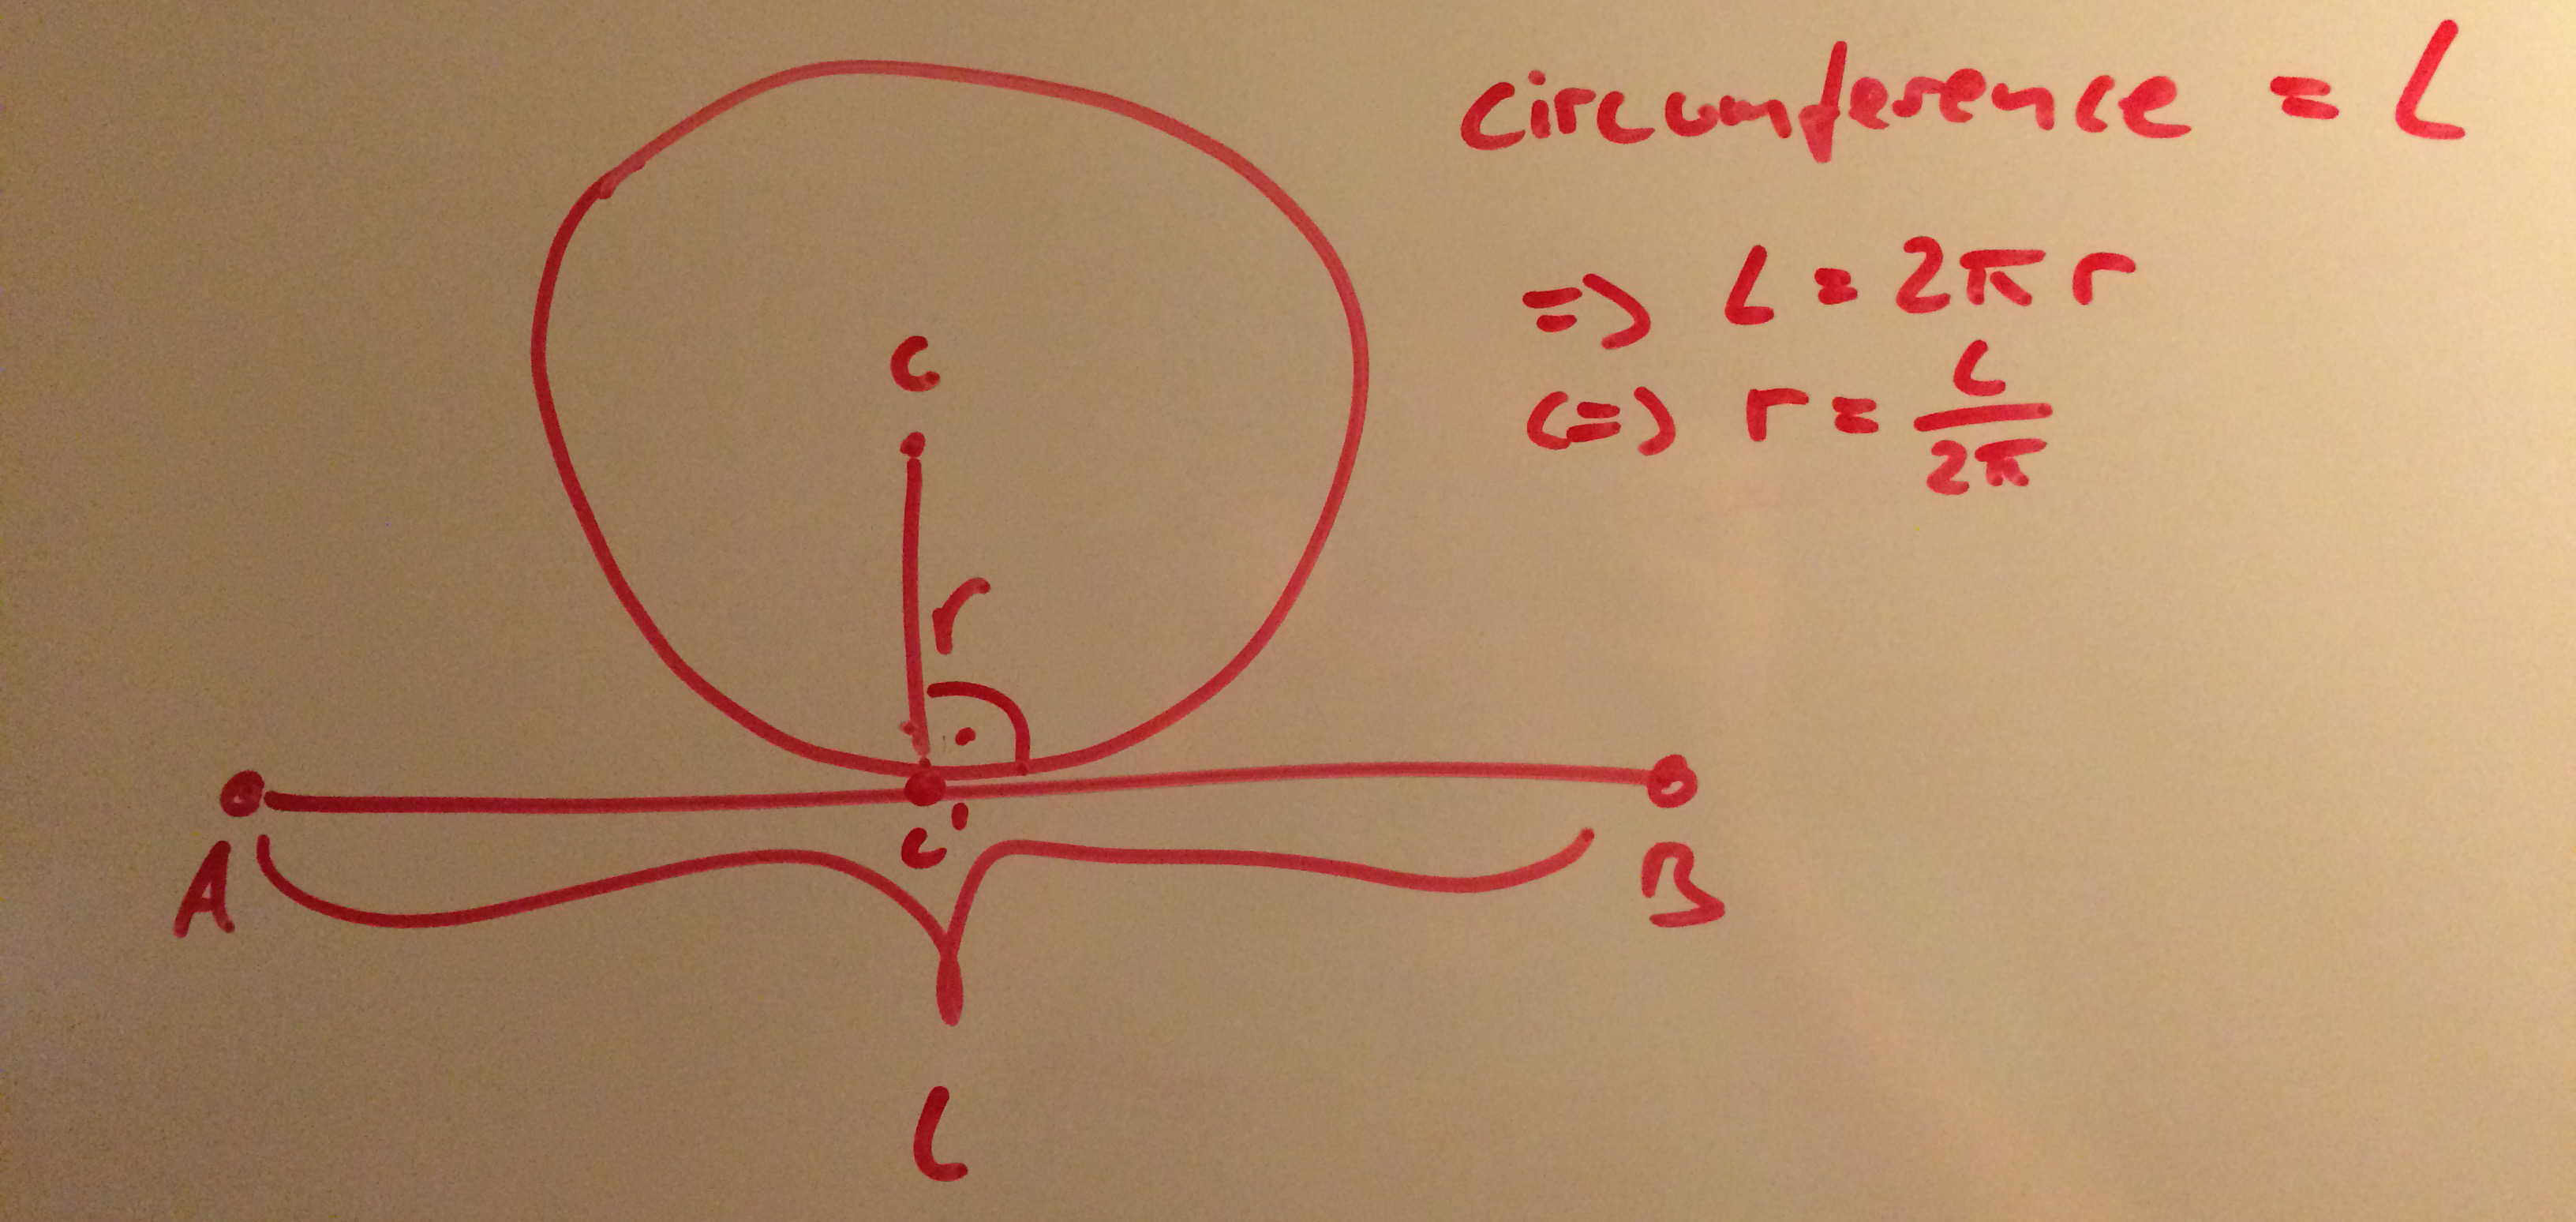 circumference = L
=> L = 2π r
<=> r = L/2π
C
r
C'
A
B
L